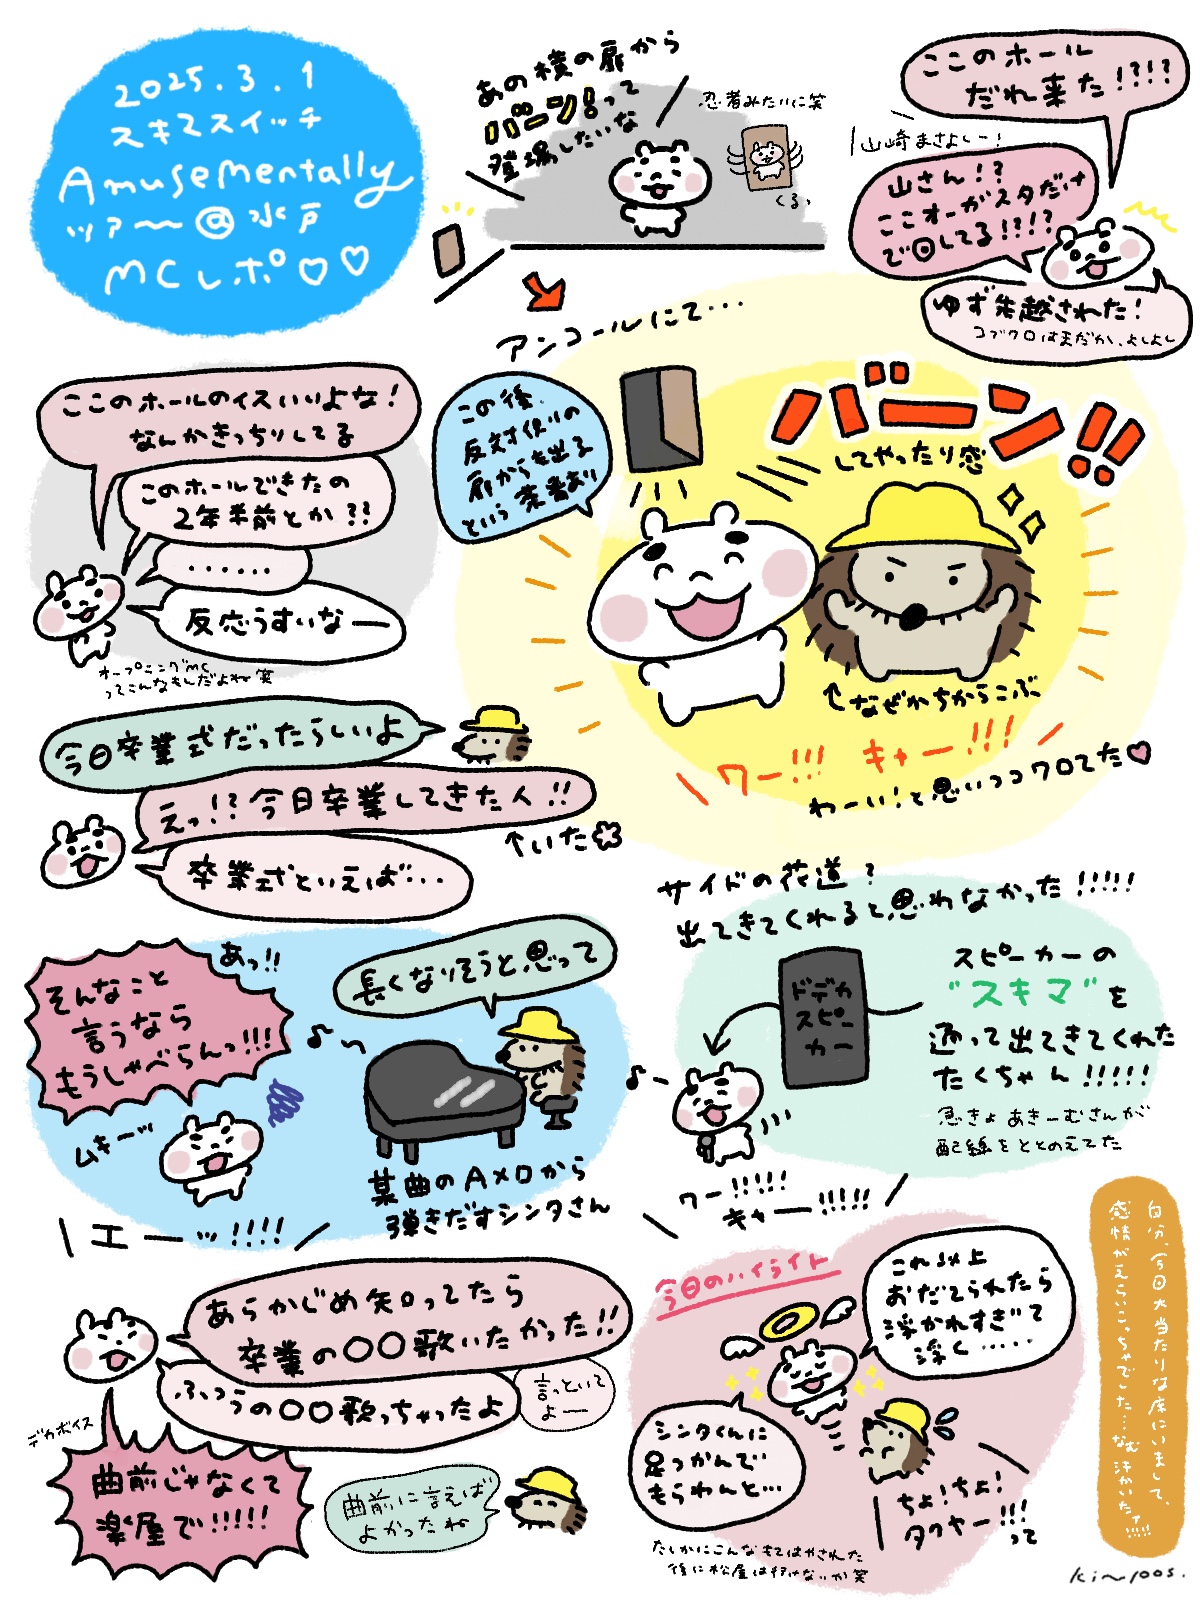 2025.3.1
スキマスイッチ
Amusementally
ツアー@水戸
MCレポ♡♡
あの横の扉から
バーン!って
登場したいな
忍者みたいに笑
くるっ
ここのホール
だれ来た!?!?
山崎まさよしー!
山さん!?
ここオーガスタだけ
で回してる!?!?
ゆず先越された!
コブクロはまだか、よしよし
ここのホールのイスいいよな!
なんかきっちりしてる
このホールできたの
2年半前とか??
・・・・・・
反応うすいなー
オープニングMC
ってこんなもんだよね笑
アンコールにて・・・
この後、
反対側の
扉からも出る
という茶番あり
バーン!!
してやったり感
↑なぜかちからこぶ
ワー!!! キャー!!!
わーい!と思いつつワロてた♡
今日卒業式だったらしいよ
えっ!?今日卒業してきた人!!
↑いた
卒業式といえば・・・
あっ!!
そんなこと
言うなら
もうしゃべらんっ!!!
ムキーッ
長くなりそうと思って
某曲のAメロから
弾きだすシンタさん
エーッ!!!!
サイドの花道?
出てきてくれると思わなかった!!!!!
ドデカ
スピー
カー
スピーカーの
"スキマ"を
通って出てきてくれた
たくちゃん!!!!!
急きょあきーむさんが
配線をととのえてた
ワー!!!!!
キャー!!!!!
あらかじめ知ってたら
卒業の〇〇歌いたかった!!
ふつうの〇〇歌っちゃったよ
言っといて
よー
デカボイス
曲前じゃなくて
楽屋で!!!!!
曲前に言えば
よかったね
今日のハイライト
これ以上
おだてられたら
浮かれすぎて
浮く・・・・・
シンタくんに
足つかんで
もらわんと・・・
ちょ!ちょ!
タクヤー!!!
って
たしかにこんなもてはやされた
後に松屋は行けないか笑
自分、今日大当たりな床にいまして、
感情がえらいこっちゃでした…なむ汗かいたァ!!!!!
kin100s.